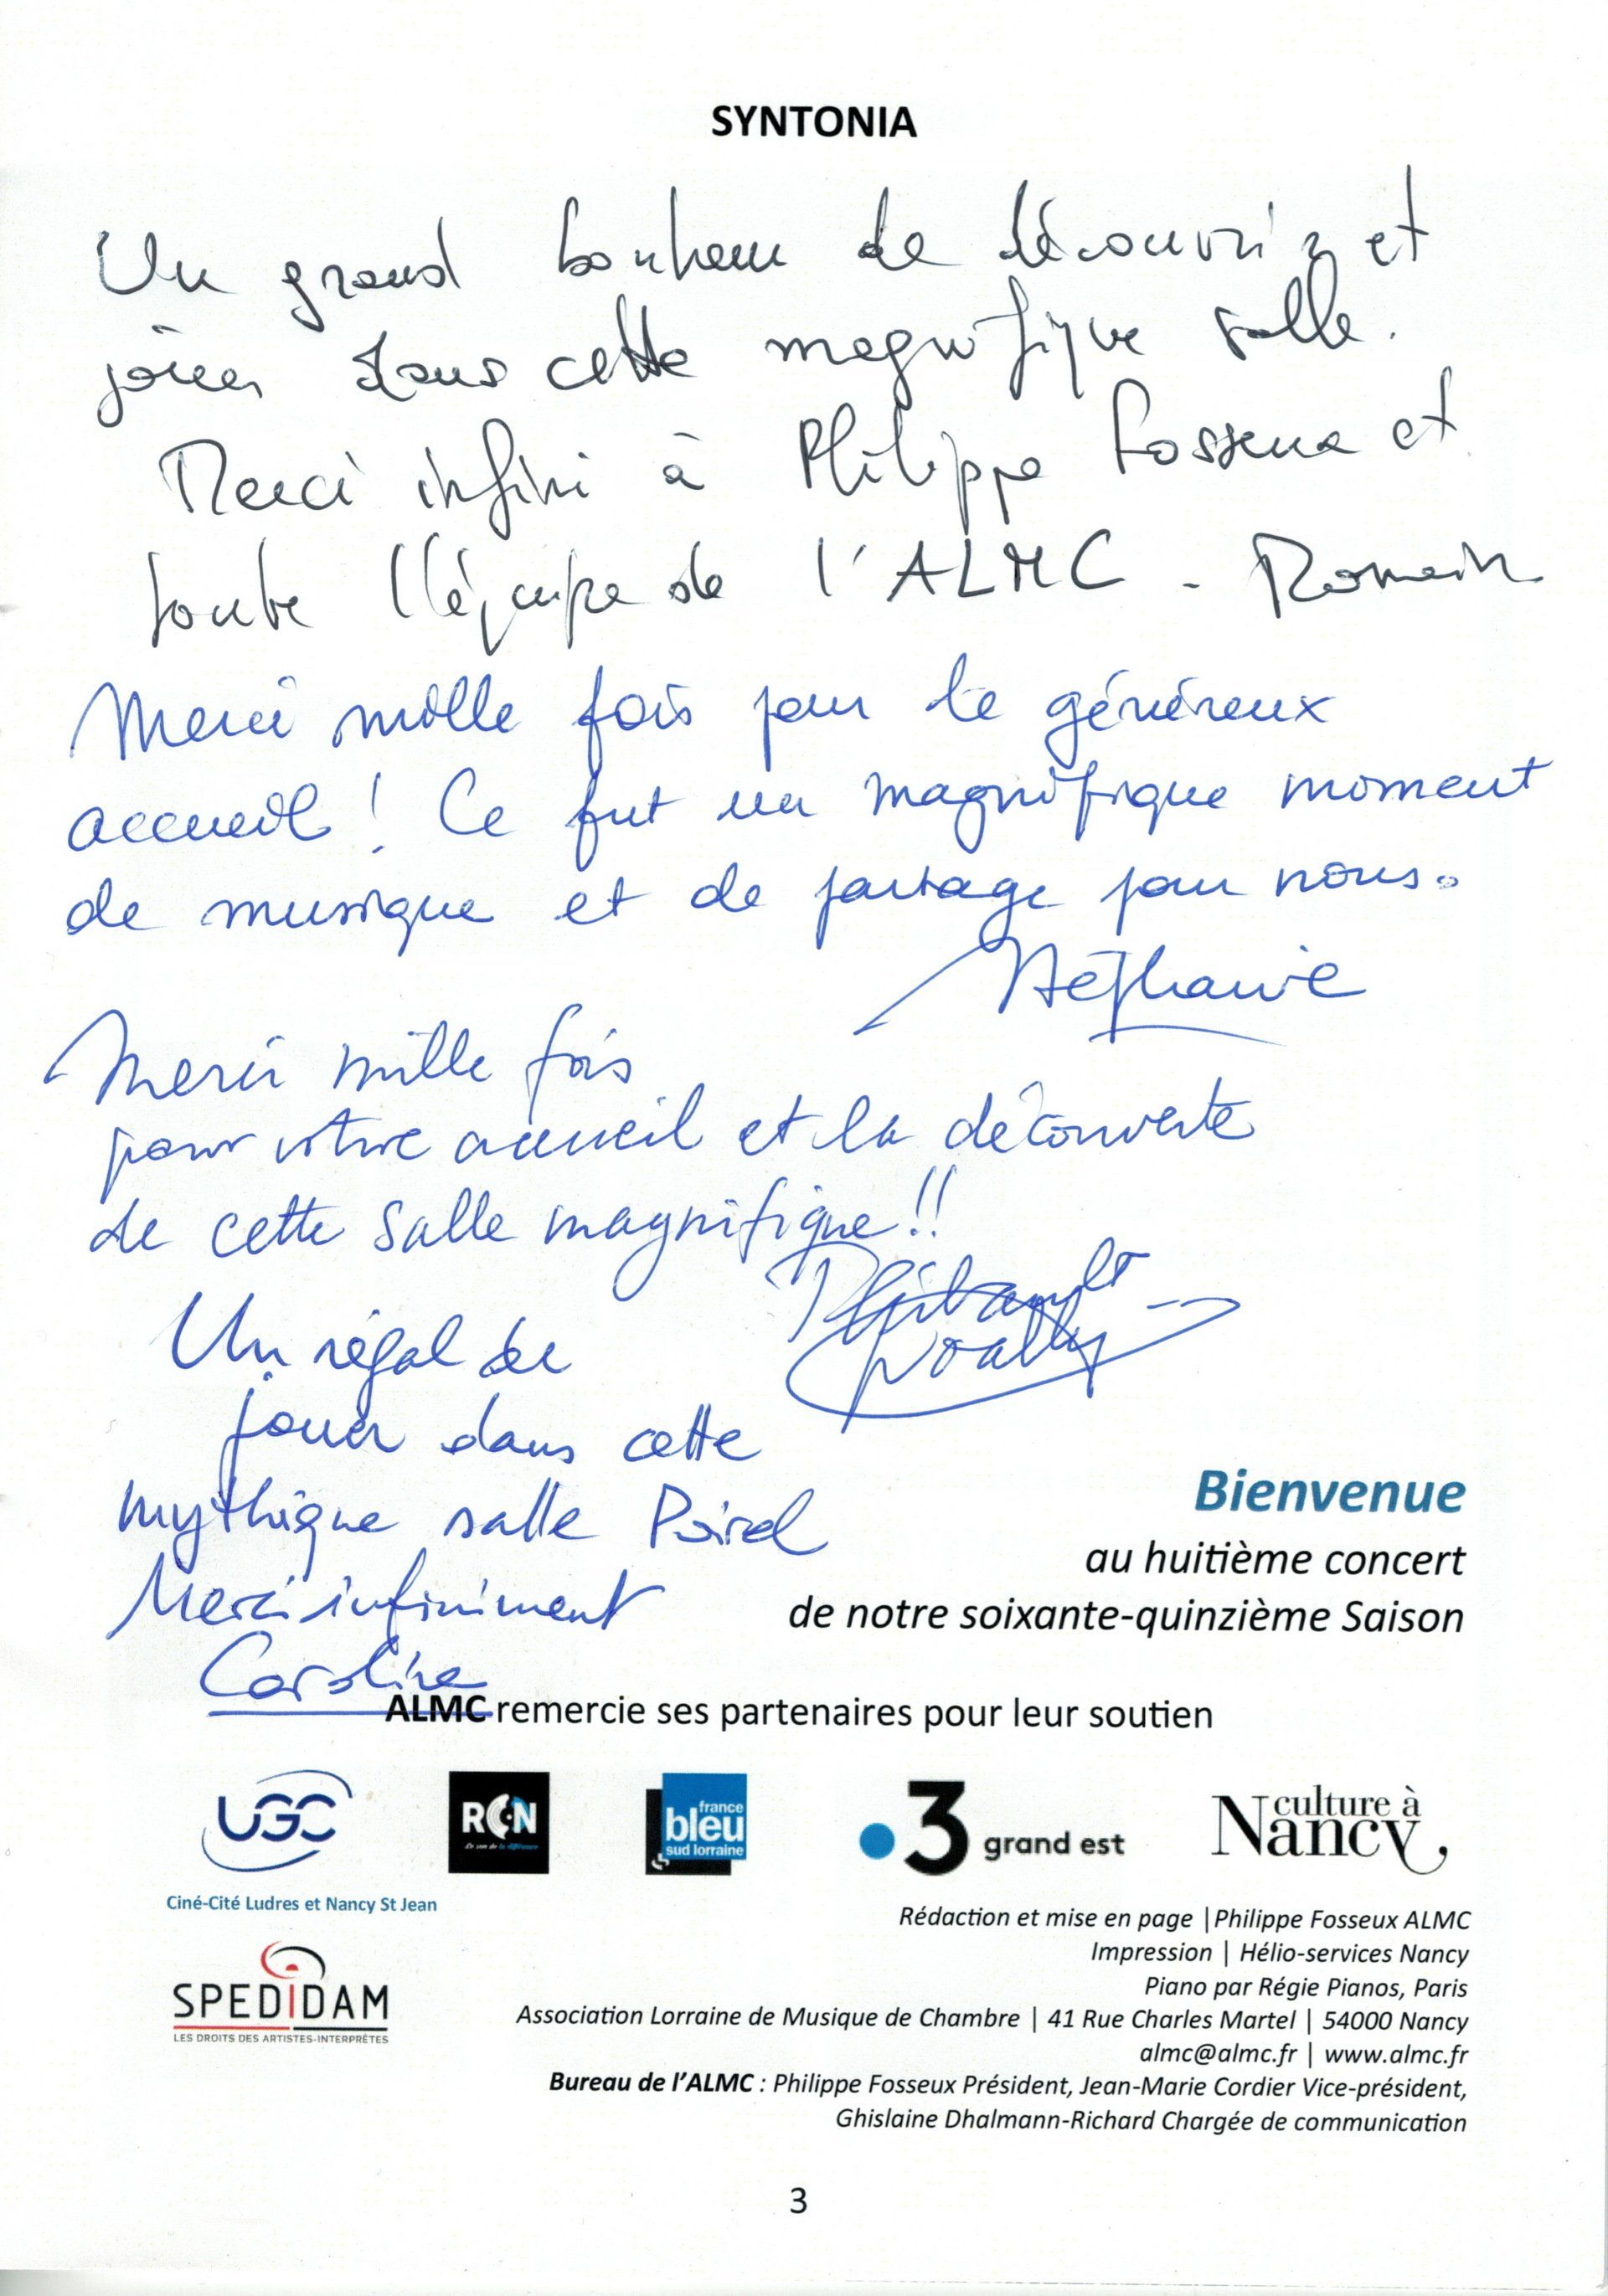 SYNTONIA
Un grand bonheur de découvrir et
jouer dans cette magnifique salle.
Merci infini à Philippe Fosseux et
toute l'équipe de l'ALMC - Romain
Merci mille fois pour le généreux
accueil ! Ce fut un magnifique moment
de musique et de partage pour nous.
Stéphanie
Merci mille fois
pour votre accueil et la découverte
de cette salle magnifique !!
Thibault
Noally
Un régal de
jouer dans cette
mythique salle Poirel
Merci infiniment
Caroline
Bienvenue
au huitième concert
de notre soixante-quinzième Saison
ALMC remercie ses partenaires pour leur soutien
UGC
Ciné-Cité Ludres et Nancy St Jean
RCN
Le son de la différence
france
bleu
sud lorraine
3 grand est
culture à
Nancy,
SPEDIDAM
LES DROITS DES ARTISTES-INTERPRÈTES
Rédaction et mise en page | Philippe Fosseux ALMC
Impression | Hélio-services Nancy
Piano par Régie Pianos, Paris
Association Lorraine de Musique de Chambre | 41 Rue Charles Martel | 54000 Nancy
almc@almc.fr | www.almc.fr
Bureau de l'ALMC : Philippe Fosseux Président, Jean-Marie Cordier Vice-président,
Ghislaine Dhalmann-Richard Chargée de communication
3